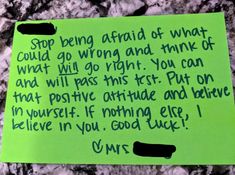 Stop being afraid of what
could go wrong and think of
what will go right. You can
and will pass this test. Put on
that positive attitude and believe
in yourself. If nothing else, I
believe in you. Good luck!
Mrs